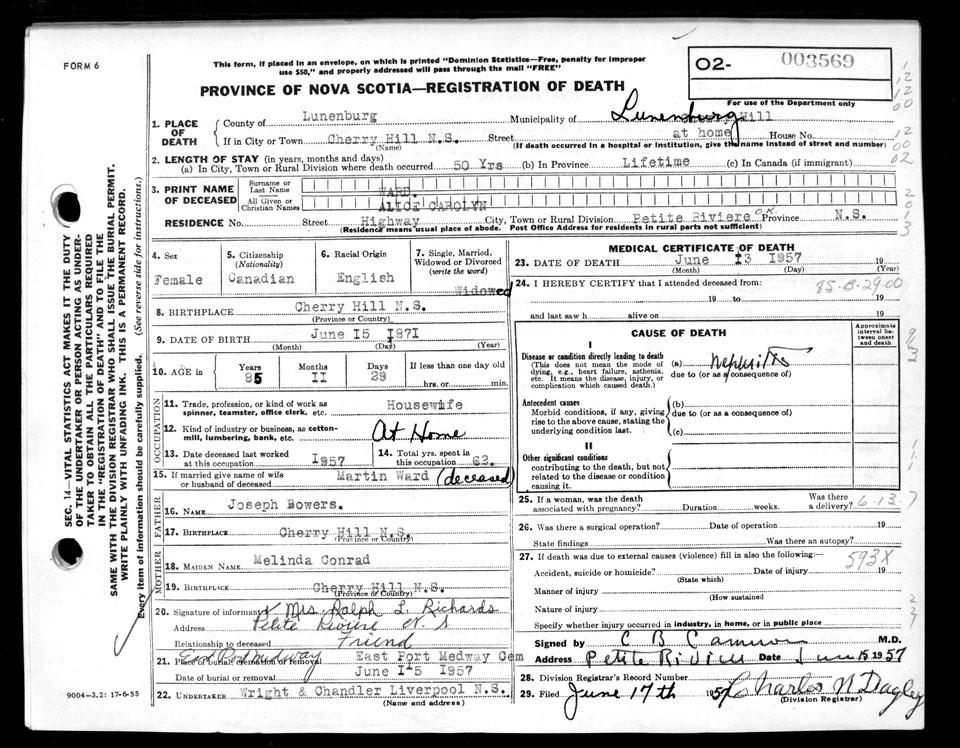 FORM 6
This form, if placed in an envelope, on which is printed "Dominion Statistics—Free, penalty for improper
use $50," and properly addressed will pass through the mail "FREE"
O2- 003569
PROVINCE OF NOVA SCOTIA—REGISTRATION OF DEATH
For use of the Department only
1. PLACE OF DEATH
County of Lunenburg Municipality of Lunenburg Hill
If in City or Town Cherry Hill N.S. Street at home House No.
(Name) (If death occurred in a hospital or institution, give the name instead of street and number)
2. LENGTH OF STAY (in years, months and days)
(a) In City, Town or Rural Division where death occurred 50 Yrs (b) In Province Lifetime (c) In Canada (if immigrant)
3. PRINT NAME OF DECEASED
Surname or Last Name WARD.
All Given or Christian Names ALICE CAROLYN
RESIDENCE No. Street Highway City, Town or Rural Division Petite Riviere OK Province N.S.
(Residence means usual place of abode. Post Office Address for residents in rural parts not sufficient)
4. Sex Female
5. Citizenship (Nationality) Canadian
6. Racial Origin English
7. Single, Married, Widowed or Divorced (write the word) Widowed
8. BIRTHPLACE Cherry Hill N.S.
(Province or Country)
9. DATE OF BIRTH June I5 I87I
(Month) (Day) (Year)
10. AGE in Years 85 Months II Days 29 If less than one day old hrs. or min.
OCCUPATION
11. Trade, profession, or kind of work as spinner, teamster, office clerk, etc. Housewife
12. Kind of industry or business, as cotton-mill, lumbering, bank, etc. At Home
13. Date deceased last worked at this occupation I957
14. Total yrs. spent in this occupation 63.
15. If married give name of wife or husband of deceased Martin Ward (deceased)
FATHER
16. NAME Joseph Bowers.
17. BIRTHPLACE Cherry Hill N.S.
(Province or Country)
MOTHER
18. MAIDEN NAME Melinda Conrad
19. BIRTHPLACE Cherry Hill N.S.
(Province or Country)
20. Signature of informant Mrs. Ralph L. Richards
Address Petite Riviere N.S
Relationship to deceased Friend
21. Place of burial, cremation or removal East Port Medway East Port Medway Cem
Date of burial or removal June I5 I957
22. UNDERTAKER Wright & Chandler Liverpool N.S.
(Name and address)
MEDICAL CERTIFICATE OF DEATH
23. DATE OF DEATH June I3 I957 19
(Month) (Day) (Year)
24. I HEREBY CERTIFY that I attended deceased from: 85-8-29-00
19 to 19
and last saw h alive on 19
CAUSE OF DEATH
Approximate interval between onset and death
I
Disease or condition directly leading to death
(This does not mean the mode of dying, e.g., heart failure, asthenia, etc. It means the disease, injury, or complication which caused death.)
(a) Nephritis
due to (or as a consequence of)
Antecedent causes
Morbid conditions, if any, giving rise to the above cause, stating the underlying condition last.
(b)
due to (or as a consequence of)
(c)
II
Other significant conditions
contributing to the death, but not related to the disease or condition causing it.
25. If a woman, was the death associated with pregnancy? Duration weeks. Was there a delivery? 6-13-7
26. Was there a surgical operation? Date of operation 19
State findings Was there an autopsy?
27. If death was due to external causes (violence) fill in also the following:— 593X
Accident, suicide or homicide? Date of injury 19
(State which)
Manner of injury
(How sustained
Nature of injury
Specify whether injury occurred in industry, in home, or in public place
Signed by C B Cameron M.D.
Address Petite Riviere Date June 15 1957
28. Division Registrar's Record Number
29. Filed June 17th 1957 Charles N Dagley
(Division Registrar)
9004—3.2: 17-6-55
SEC. 14—VITAL STATISTICS ACT MAKES IT THE DUTY
OF THE UNDERTAKER OR PERSON ACTING AS UNDER-
TAKER TO OBTAIN ALL THE PARTICULARS REQUIRED
IN THE "REGISTRATION OF DEATH" AND TO FILE THE
SAME WITH THE DIVISION REGISTRAR WHO SHALL ISSUE THE BURIAL PERMIT.
WRITE PLAINLY WITH UNFADING INK. THIS IS A PERMANENT RECORD.
Every item of information should be carefully supplied. (See reverse side for instructions.)